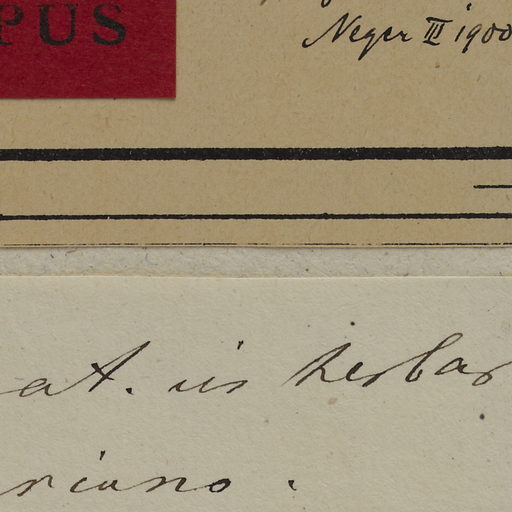 PUS
Neger III 1900
at. in herbar
riano.